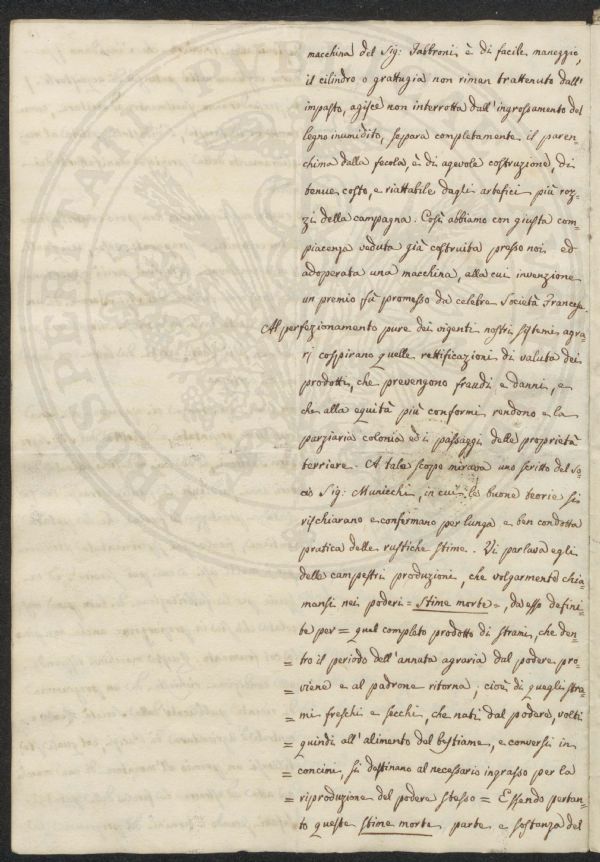 macchina del Sig: Fabbroni è di facile maneggio,
il cilindro o grattugia non riman trattenuto dall'
impasto, agisce non interrotta dall'ingrossamento del
legno inumidito, separa completamente il paren-
chima dalla fecola, è di agevole costruzione, di
tenue costo, e riattabile dagli artefici più roz-
zi della campagna. Così abbiamo con giusta com-
piacenza veduta già costruita presso noi ed
adoperata una macchina, alla cui invenzione
un premio fù promesso da celebre Società Francese.
Al perfezionamento pure dei vigenti nostri sistemi agra-
rj cospirano quelle rettificazioni di valuta dei
prodotti, che prevengono fraudi e danni, e
che alla equità più conformi rendono e la
parziaria colonia ed i passaggi delle proprietà
terriere. A tale scopo mirava uno scritto del So-
cio Sig: Municchi, in cui le buone teorie si
rischiarano e confermano per lunga e ben condotta
pratica delle rustiche stime. Vi parlava egli
delle campestri produzioni, che volgarmente chia-
mansi nei poderi = Stime morte =, da esso defini-
te per = quel completo prodotto di strami, che den-
= tro il periodo dell'annata agraria dal podere pro-
= viene e al padrone ritorna; cioè di quegli stra-
= mi freschi e secchi, che nati dal podere, volti
= quindi all'alimento del bestiame, e conversi in
= concime, si destinano al necessario ingrasso per la
= riproduzione del podere stesso = Essendo pertan-
to queste stime morte parte e sostanza del